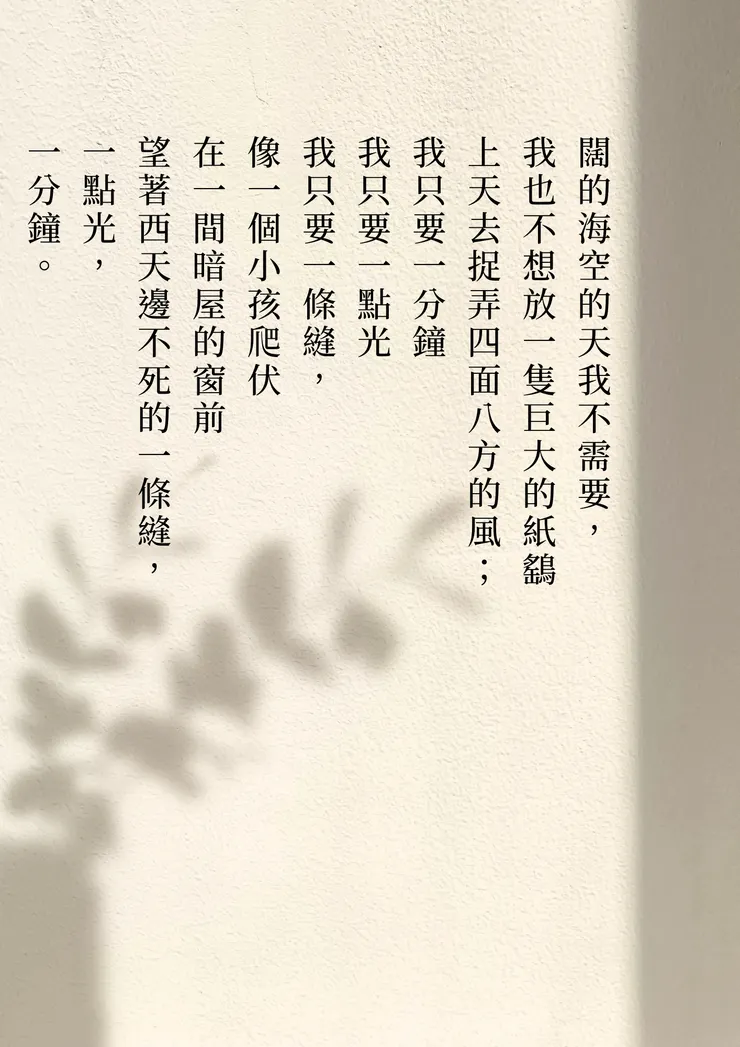 闊的海空的天我不需要，
我也不想放一隻巨大的紙鷂
上天去捉弄四面八方的風；
我只要一分鐘
我只要一點光
我只要一條縫，
像一個小孩爬伏
在一間暗屋的窗前
望著西天邊不死的一條縫，
一點光，
一分鐘。